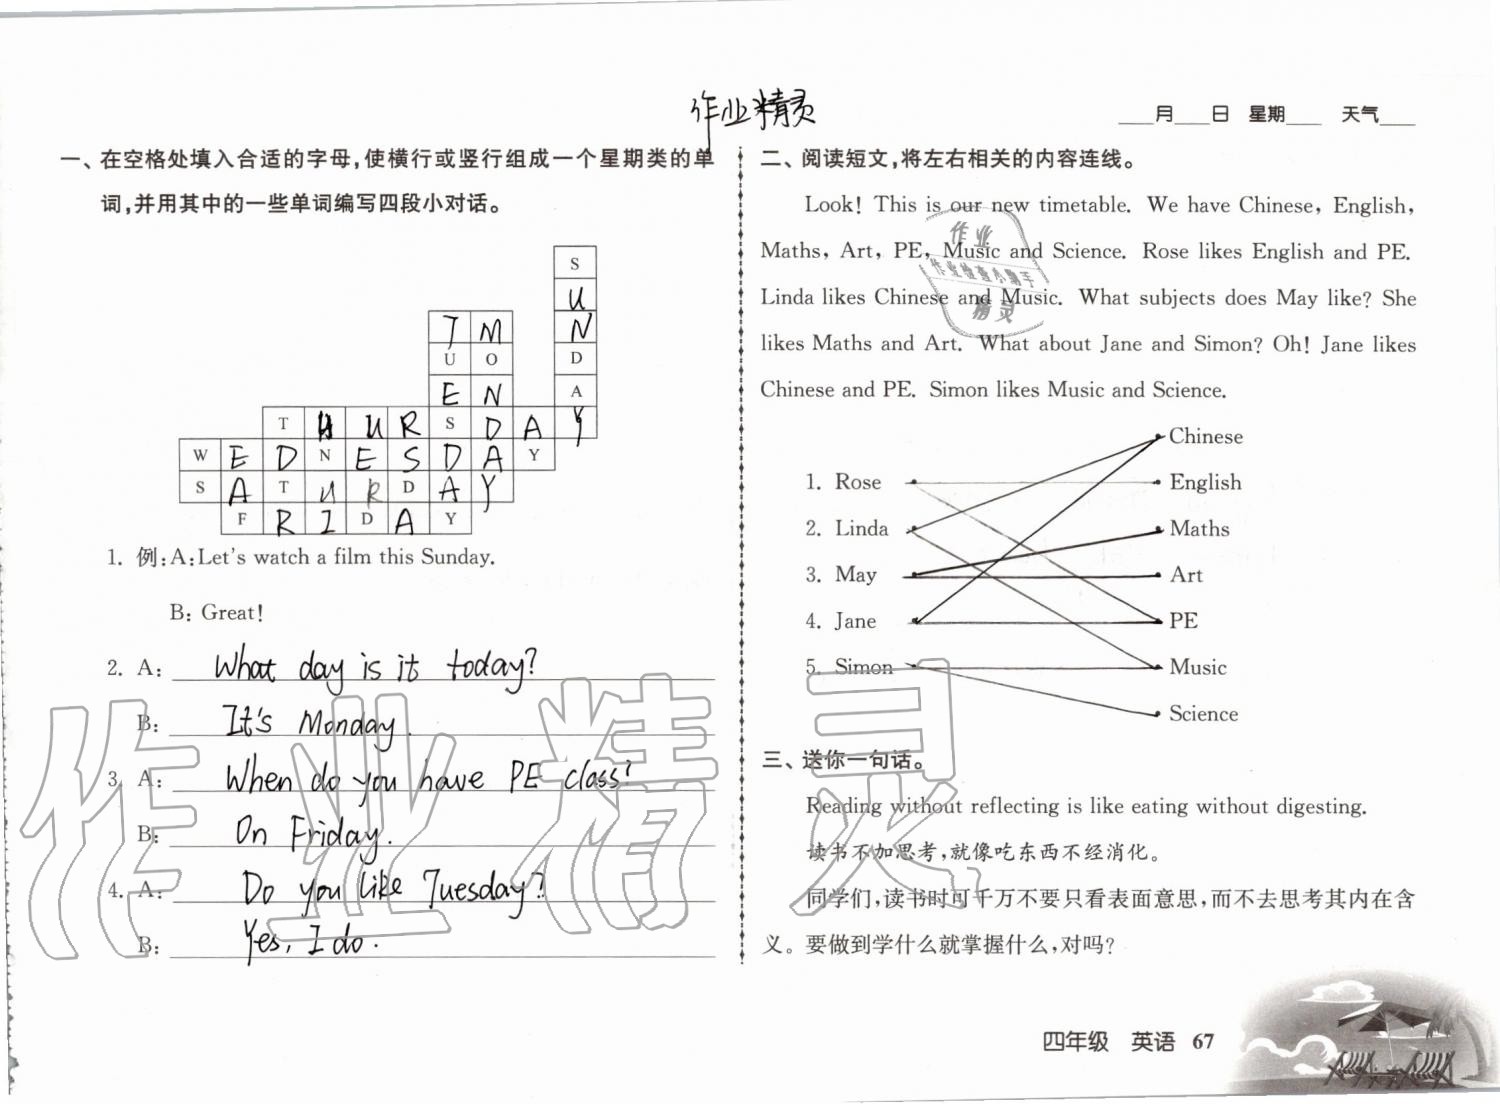 作业精灵
____月____日 星期____ 天气____
一、在空格处填入合适的字母,使横行或竖行组成一个星期类的单
词,并用其中的一些单词编写四段小对话。
S
U
T M N
U O D
E N A
T H U R S D A Y
W E D N E S D A Y
S A T U R D A Y
F R I D A Y
1. 例:A:Let's watch a film this Sunday.
B: Great!
2. A: What day is it today?
B: It's Monday.
3. A: When do you have PE class?
B: On Friday.
4. A: Do you like Tuesday?
B: Yes, I do.
二、阅读短文,将左右相关的内容连线。
Look! This is our new timetable. We have Chinese, English,
Maths, Art, PE, Music and Science. Rose likes English and PE.
Linda likes Chinese and Music. What subjects does May like? She
likes Maths and Art. What about Jane and Simon? Oh! Jane likes
Chinese and PE. Simon likes Music and Science.
Chinese
1. Rose English
2. Linda Maths
3. May Art
4. Jane PE
5. Simon Music
Science
三、送你一句话。
Reading without reflecting is like eating without digesting.
读书不加思考,就像吃东西不经消化。
同学们,读书时可千万不要只看表面意思,而不去思考其内在含
义。要做到学什么就掌握什么,对吗?
四年级 英语 67
作业
作业检查小帮手
精灵
作业精灵